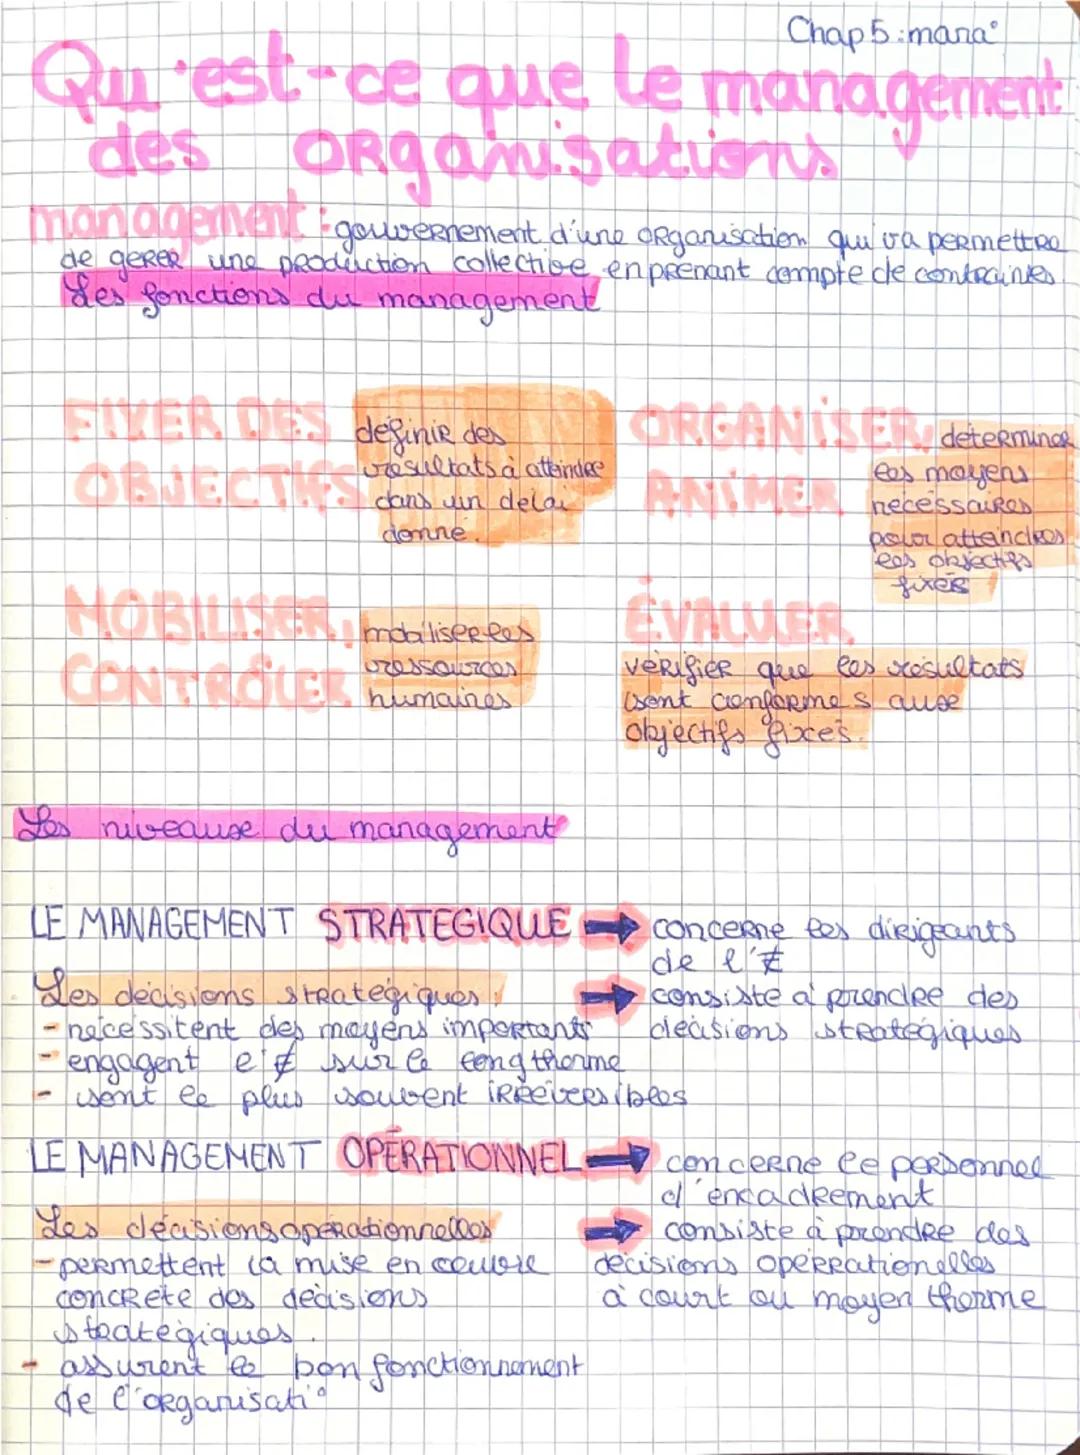 Chap 5 : mana°
Qu'est-ce que le management
des ORganisations
management : gouvernement d'une ORganisation qui va permettre
de gerer une production collective en prenant compte de contraintes.
Les fonctions du management
FIXER DES
OBJECTIFS
définir des
resultats à atteindre
dans un delai
donné.
ORGANISER,
ANIMER
déterminer
les moyens
necessaires
pour atteindres
les objectifs
fixés
MOBILISER,
CONTRÔLER
mobiliser les
ressources
humaines
ÉVALUER
vérifier que les résultats
sont conformes aux
objectifs fixés.
Les niveaux du management
LE MANAGEMENT STRATEGIQUE → concerne les dirigeants
de l'≠
Les décisions stratégiques :
→ consiste à prendre des
décisions stratégiques
- nécessitent des moyens importants
- engagent l'≠ sur le long therme
- sont le plus souvent irréversibles
LE MANAGEMENT OPÉRATIONNEL → concerne le personnel
d'encadrement
Les décisions opérationnelles
→ consiste à prendre des
décisions opérrationelles
à court ou moyen therme
- permettent la mise en oeuvre
concrète des décisions
stratégiques.
- assurent le bon fonctionnement
de l'organisati°